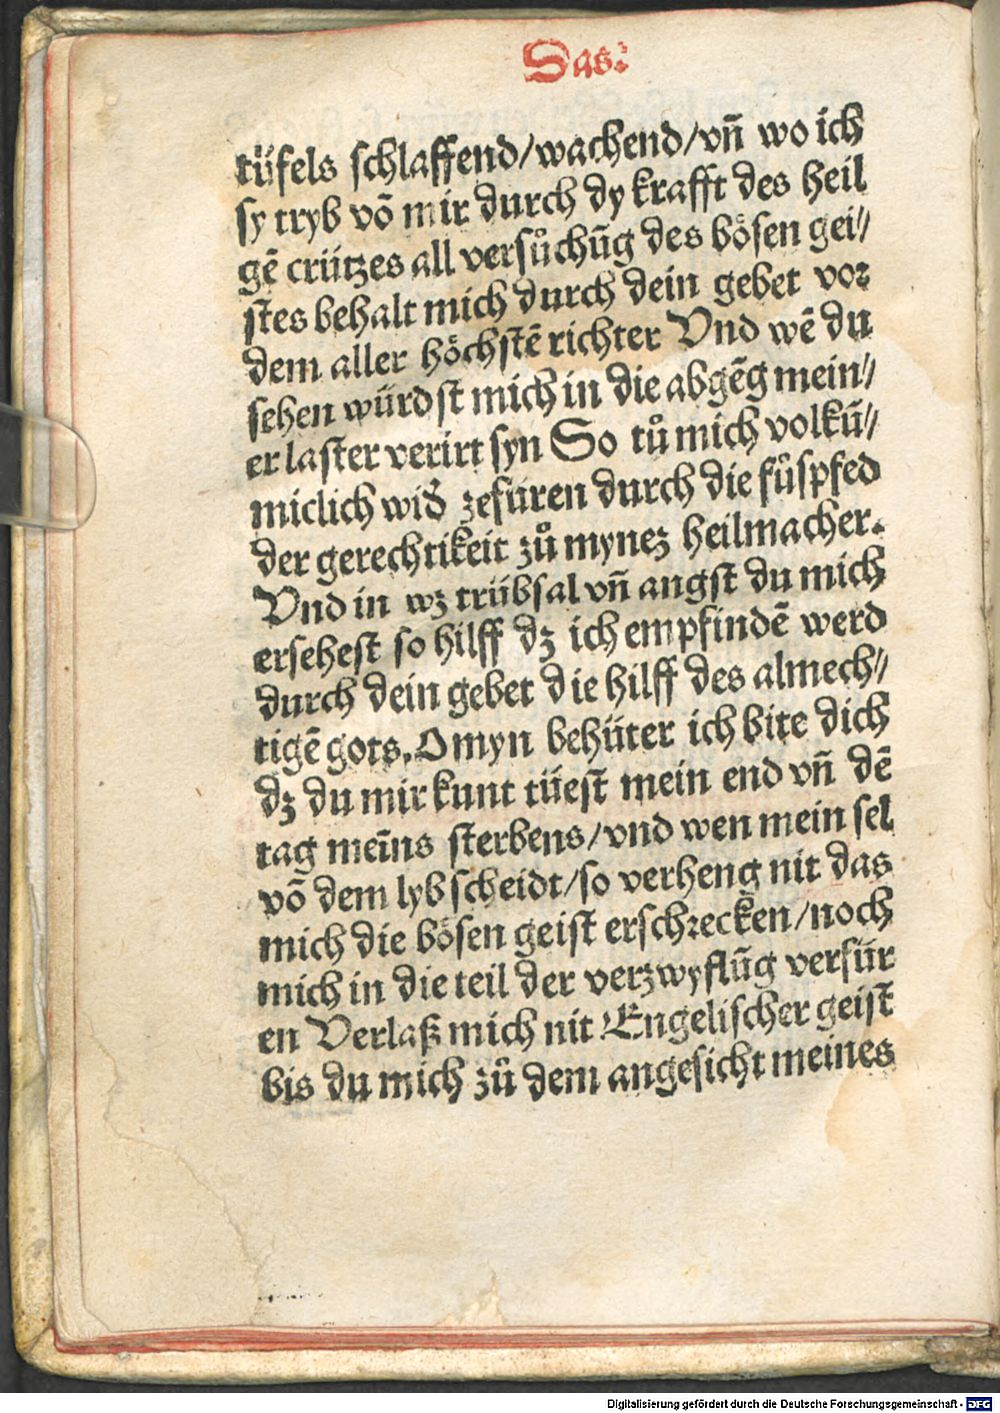 Das:
tüfels schlaffend/wachend/vñ wo ich
sy tryb võ mir durch dy krafft des heil
gẽ crützes all versůchũg des bösen gei//
stes behalt mich durch dein gebet vor
dem aller höchstẽ richter Vnd wẽ du
sehen würdst mich in die abgẽg mein//
er laster verirt syn So tů mich volkũ//
miclich wid̄ zefüren durch die fůspfed
der gerechtikeit zů mynez heilmacher.
Vnd in wz trübsal vñ angst du mich
ersehest so hilff dz ich empfindẽ werd
durch dein gebet die hilff des almech//
tigẽ gots. O myn behüter ich bite dich
dz du mir kunt tüest mein end vñ dẽ
tag mein̄s sterbens/vnd wen mein sel
võ dem lyb scheidt/so verheng nit das
mich die bösen geist erschrecken/noch
mich in die teil der verzwyflũg verfür
en Verlaß mich nit Engelischer geist
bis du mich zů dem angesicht meines
Digitalisierung gefördert durch die Deutsche Forschungsgemeinschaft - DFG